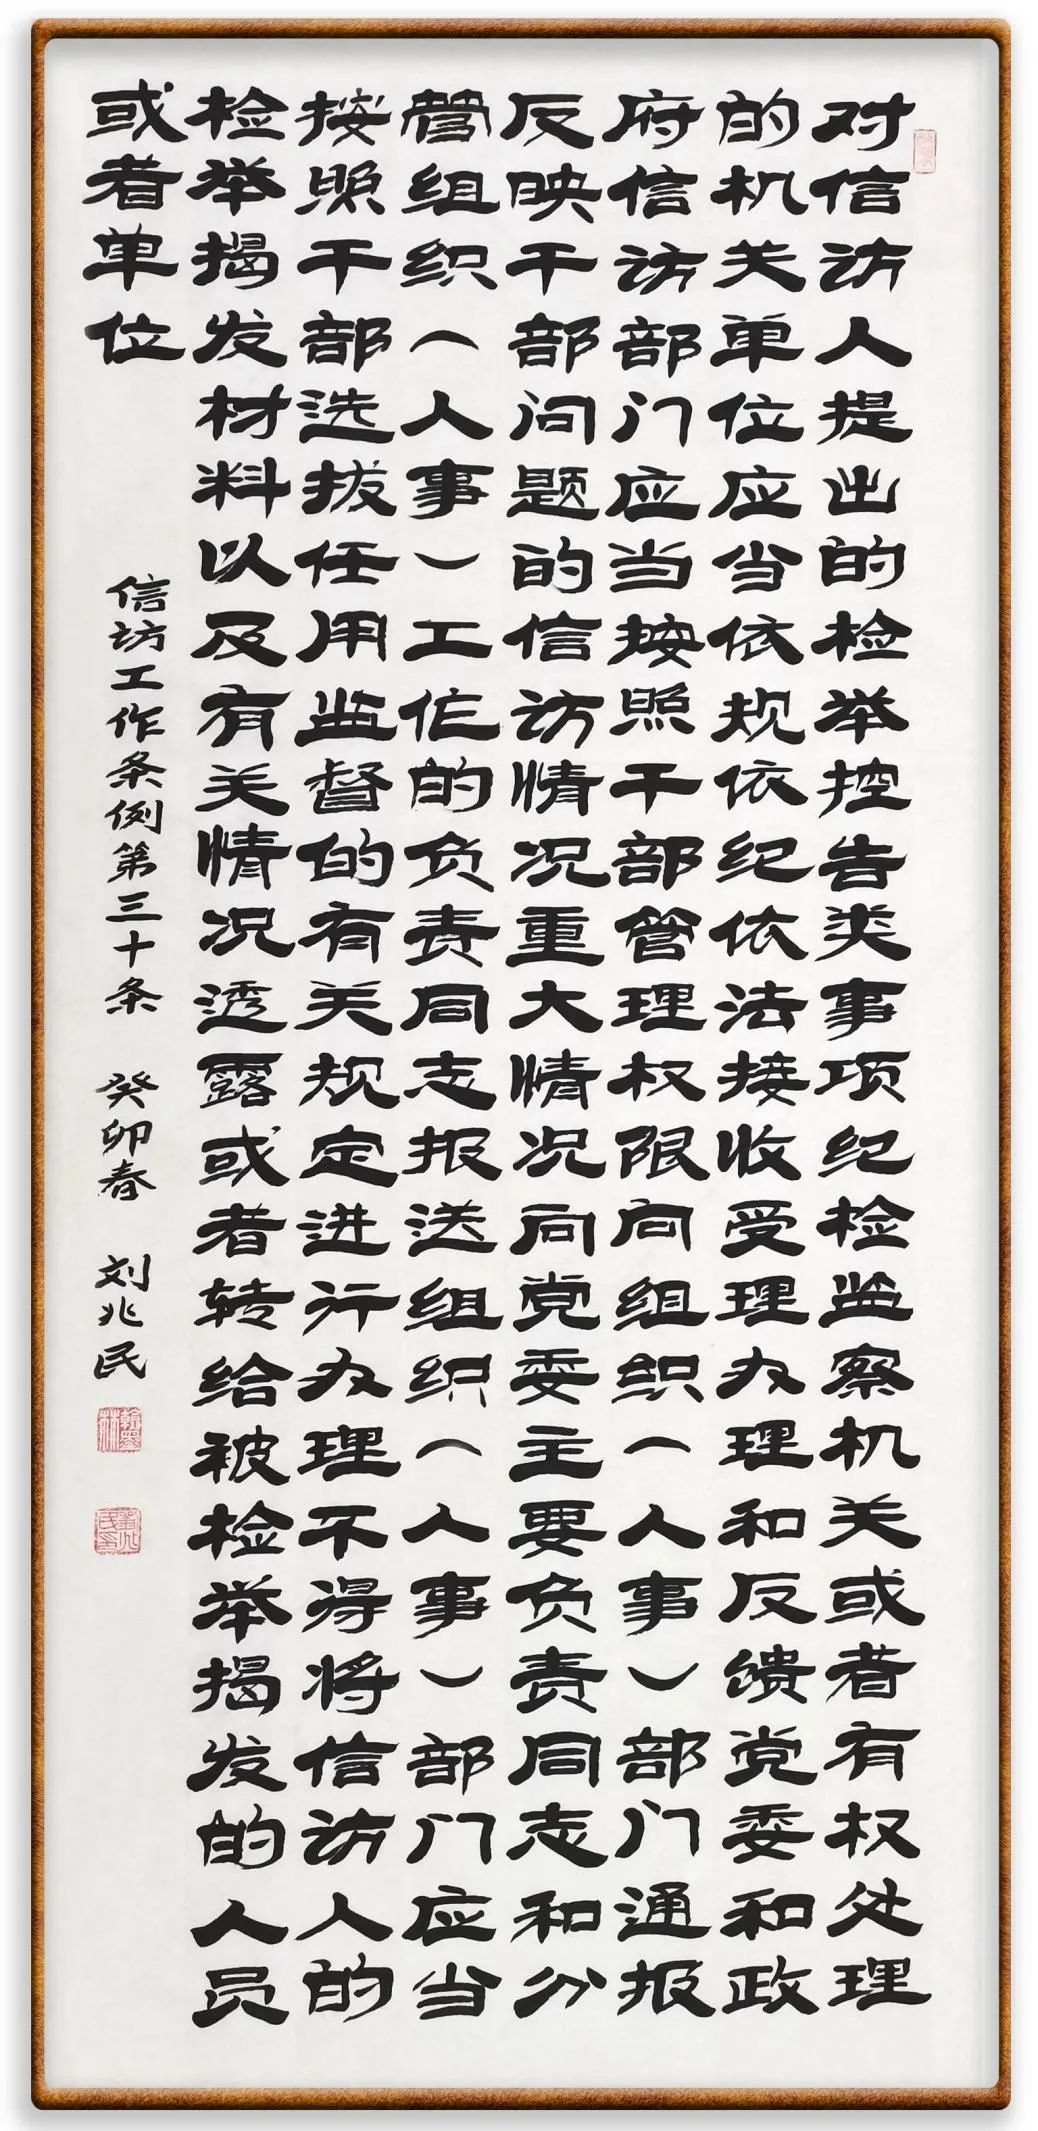 对信访人提出的检举控告类事项纪检监察机关或者有权处理
的机关单位应当依规依纪依法接收受理办理和反馈党委和政
府信访部门应当按照干部管理权限向组织（人事）部门通报
反映干部问题的信访情况重大情况向党委主要负责同志和分
管组织（人事）工作的负责同志报送组织（人事）部门应当
按照干部选拔任用监督的有关规定进行办理不得将信访人的
检举揭发材料以及有关情况透露或者转给被检举揭发的人员
或者单位
信访工作条例第三十条 癸卯春 刘兆民